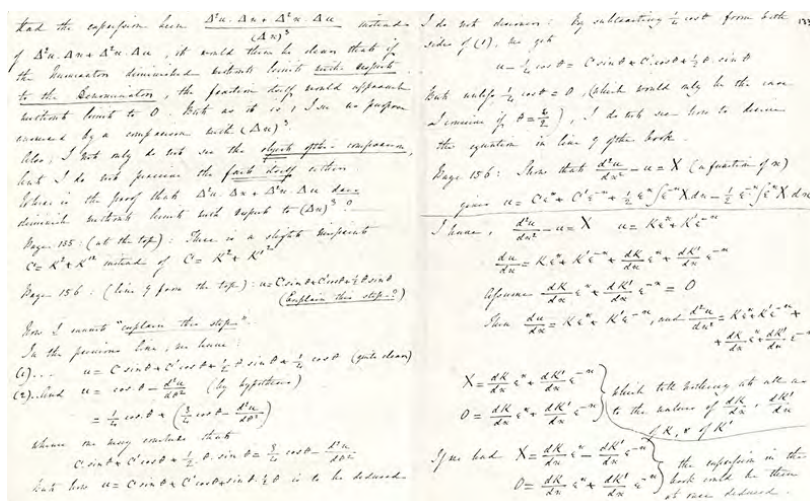 that the expression been Δ²u.Δx + Δ²x.Δu / (Δx)³ instead
of Δ²u.Δx + Δ²x.Δu, it would then be clear that if
the numerator diminished without limit with respect
to the Denominator, the fraction itself would approach
without limit to 0. But as it is, I see no purpose
answered by a comparison with (Δx)³.
Also, I not only do not see the object of the comparison,
but I do not perceive the fact itself either.
Where is the proof that Δ²u.Δx + Δ²x.Δu does
diminish without limit with respect to (Δx)³?
Page 135: (at the top): There is a slight misprint
C = K² + K'² instead of C = K² + K'²
Page 156: (line 9 from the top): u = C sin θ + C' cos θ + ½ θ sin θ
(Explain this step?)
Now I cannot "explain this step".
In the previous line, we have:
(1)... u = C sin θ + C' cos θ + ½ θ sin θ + ¼ cos θ (quite clear)
(2). And u = cos θ − d²u/dθ² (by hypothesis)
= ¼ cos θ + (¾ cos θ − d²u/dθ²)
whence one may conclude that
C sin θ + C' cos θ + ½ θ. sin θ = ¾ cos θ − d²u/dθ²
But how u = C sin θ + C' cos θ + sin θ. ½ θ is to be deduced
I do not discover: By subtracting ¼ cos θ from both
sides of (1), we get
u − ¼ cos θ = C sin θ + C' cos θ + ½ θ. sin θ
But unless ¼ cos θ = 0 (which would only be the case
I conceive if θ = π/2), I do not see how to derive
the equation in line 9 of the book.
Page 156: Show that d²u/dx² − u = X (a function of x)
gives u = Cεˣ + C'ε⁻ˣ + ½ εˣ∫ε⁻ˣX dx − ½ ε⁻ˣ∫εˣX dx
I have, d²u/dx² − u = X u = Kεˣ + K'ε⁻ˣ
du/dx = Kεˣ + K'ε⁻ˣ + dK/dx εˣ + dK'/dx ε⁻ˣ
Assume dK/dx εˣ + dK'/dx ε⁻ˣ = 0
Then du/dx = Kεˣ + K'ε⁻ˣ, and d²u/dx² = Kεˣ + K'ε⁻ˣ +
+ dK/dx εˣ + dK'/dx ε⁻ˣ
X = dK/dx εˣ + dK'/dx ε⁻ˣ
0 = dK/dx εˣ + dK'/dx ε⁻ˣ
which tell nothing at all as
to the values of dK/dx, dK'/dx
of K, & of K'
If we had X = dK/dx εˣ − dK'/dx ε⁻ˣ
0 = dK/dx εˣ + dK'/dx ε⁻ˣ
the expression in the
book could be then
at once deduced.